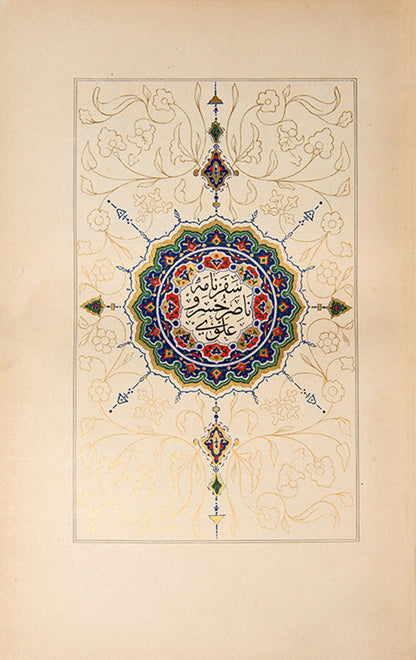 سفرنامه
ناصر خسرو
علوی